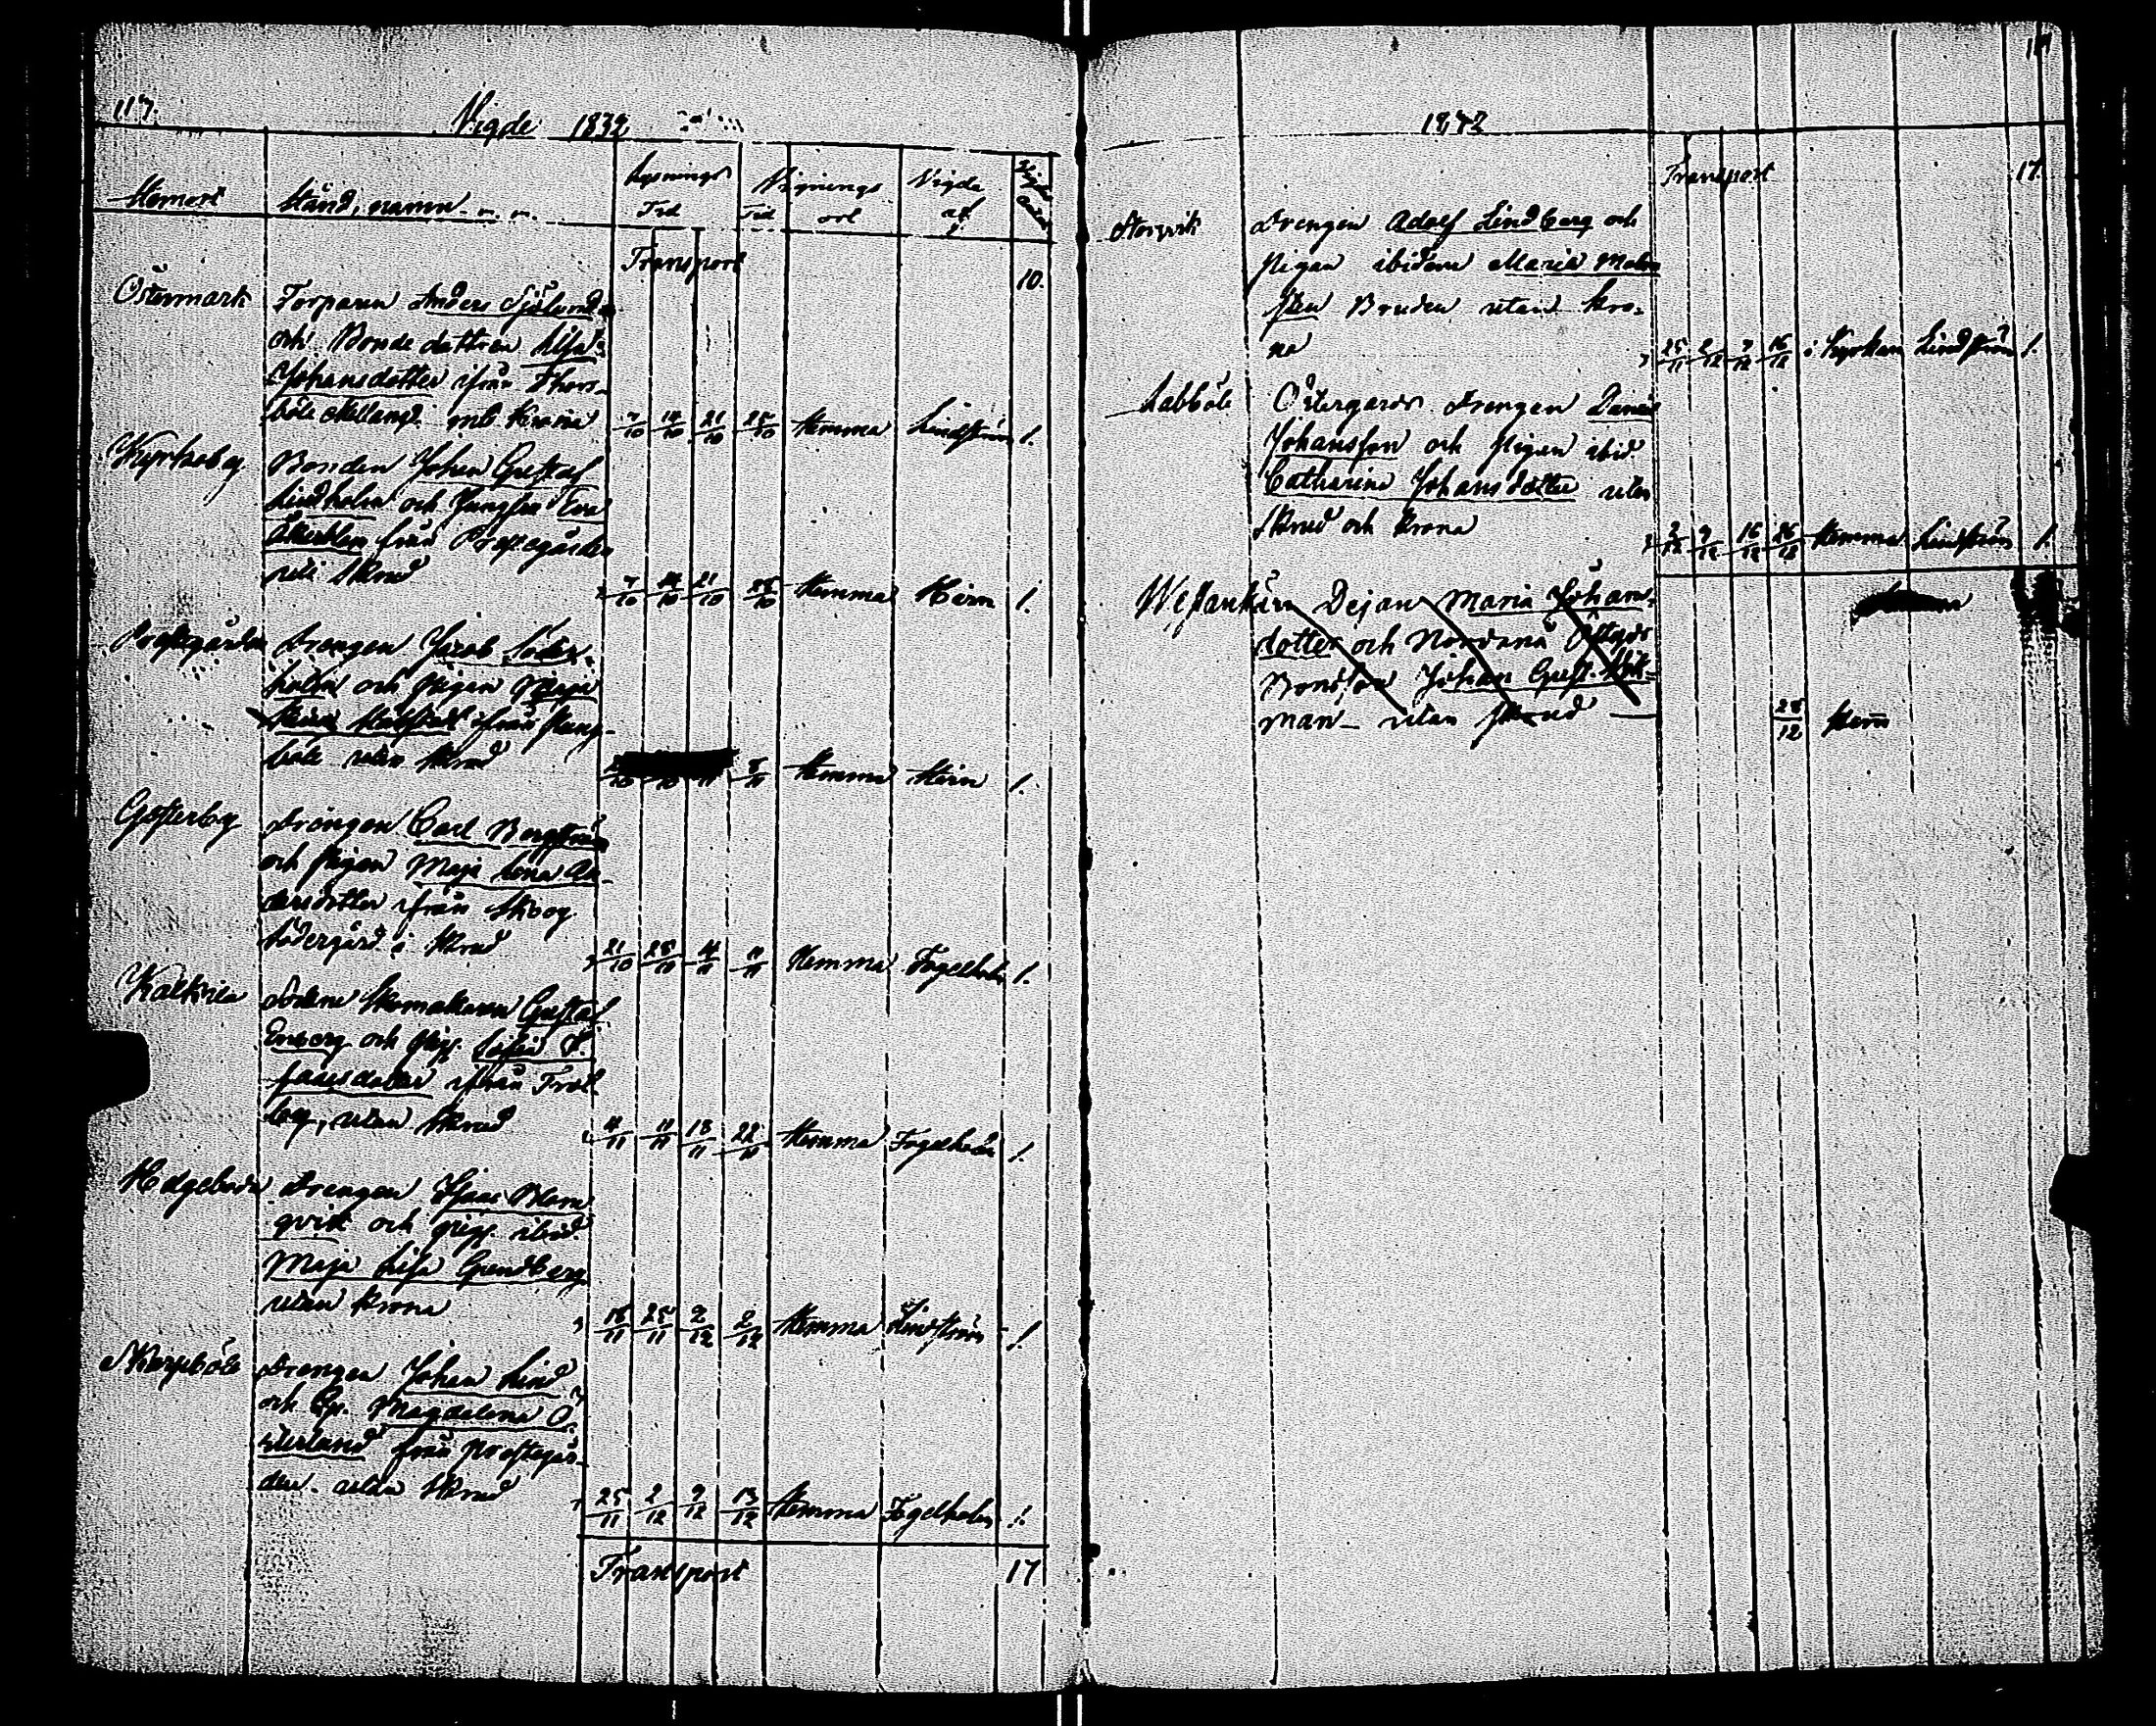 117.
Vigde 1832
Hemort
Stånd, namn m. m.
Lysnings Tid
Vignings
Tid ort
Vigde af
Transport 10.
Östermark Torparen Anders Sjölund
och Bonde dottren Lisa
Johansdotter ifrån Thors-
böle Mellang. med Krona 7/10 14/10 21/10 25/10 Hemma Lindström 1.
Kyrkoby Bonden Johan Gustaf
Lindholm och Jungfru Eva
Åkerblom från Prostgården
uti Skrud 7/10 14/10 21/10 28/10 Hemma Hirn 1.
Prostgården Drengen Jacob Söder-
holm och Pigan Maja
ifrån
böle utan Skrud 8/11 Hemma Hirn 1.
Gästerby Drängen Carl Bergström
och Pigan Maja Lona An-
dersdotter ifrån Skoog
Södergård i Skrud 21/10 28/11 4/11 11/11 Hemma Fogelholm 1.
Kalkila Sockne Skomakaren Gustaf
Enberg och Pig. Sofia I-
saacsdotter ifrån Fröl
by, utan Skrud 4/11 11/11 18/11 22/11 Hemma Fogelholm 1.
Helgeboda Drengen Isaac Blom
qvist och Pig. ibid.
Maja Lisa Grundberg
utan Krona 18/11 25/11 2/12 2/12 Hemma Lindström 1.
Skarpböle Drengen Johan Lind
och Magdalena Ö-
sterlund från Prostegår-
den utan Skrud 25/11 2/12 9/12 13/12 Hemma Fogelholm 1.
Transport 17
1832
Transport 17.
Storvik Drengen Adolf Lindberg och
Pigan ibidem Maria Malm
sten Bruden utan Kro-
na 25/11 2/12 9/12 16/12 i Kyrkan Lindström 1.
Labböle Östergårds Drengen Daniel
Johansson och Pigan ibid.
Catharina Johansdotter utan
Skrud och Krona 2/12 9/12 16/12 26/12 Hemma Lindström 1.
Westankärr Dejan Maria Johans-
dotter och Nordanå
Bondson Johan Gust.
man utan Skrud 28/12 Hem